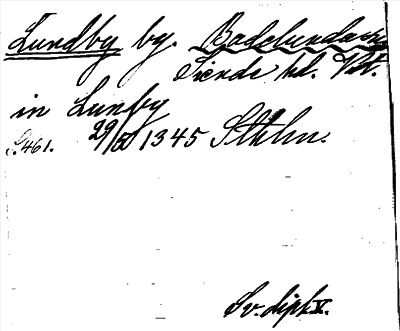 Lundby by. Badelunda sn
Siende hd. Vstm.
in Lunby
S. 461. 29/5 1345 Sthlm.
Sv. dipl. V.